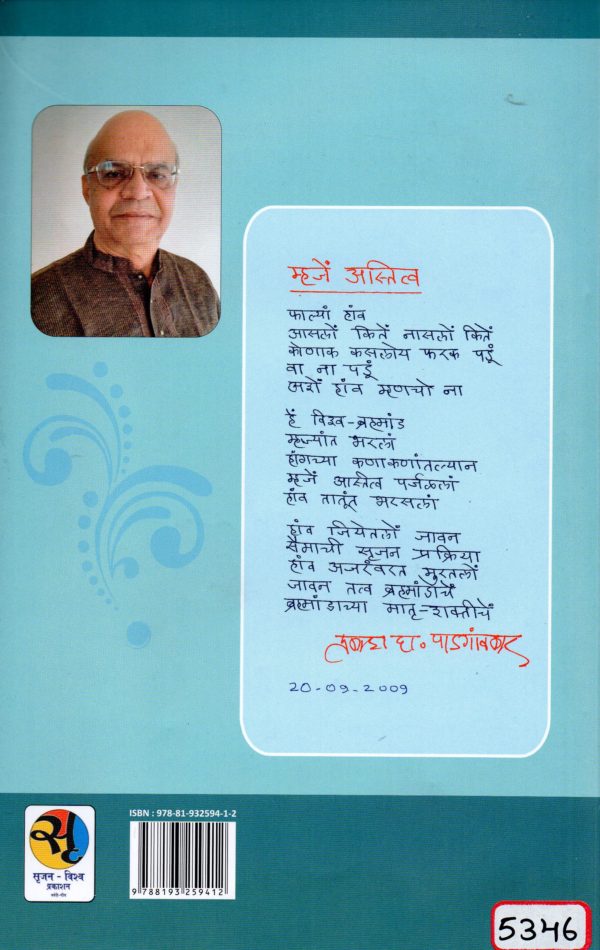 म्हजें अस्तित्व
फाल्यां हांव
आसलों कितें नासलों कितें
कोणाक कसलोय फरक पडूं
वा ना पडूं
अशें हांव म्हणचो ना
हें विश्व-ब्रह्मांड
म्हज्यांत भरलां
हांगच्या कणाकणांतल्यान
म्हजें अस्तित्व पर्जळळां
हांव तातूंत भरसलां
हांव जियेतलों जावन
सैमाची सृजन प्रक्रिया
हांव अजरंवरत मुरतलों
जावन तत्व ब्रह्मांडाचें
ब्रह्मांडाच्या मातृ-शक्तीचें
प्रकाश दा. पाडगांवकार
20-09-2009
सृ
सृजन - विश्व
प्रकाशन
ISBN : 978-81-932594-1-2
9 788193 259412
5346